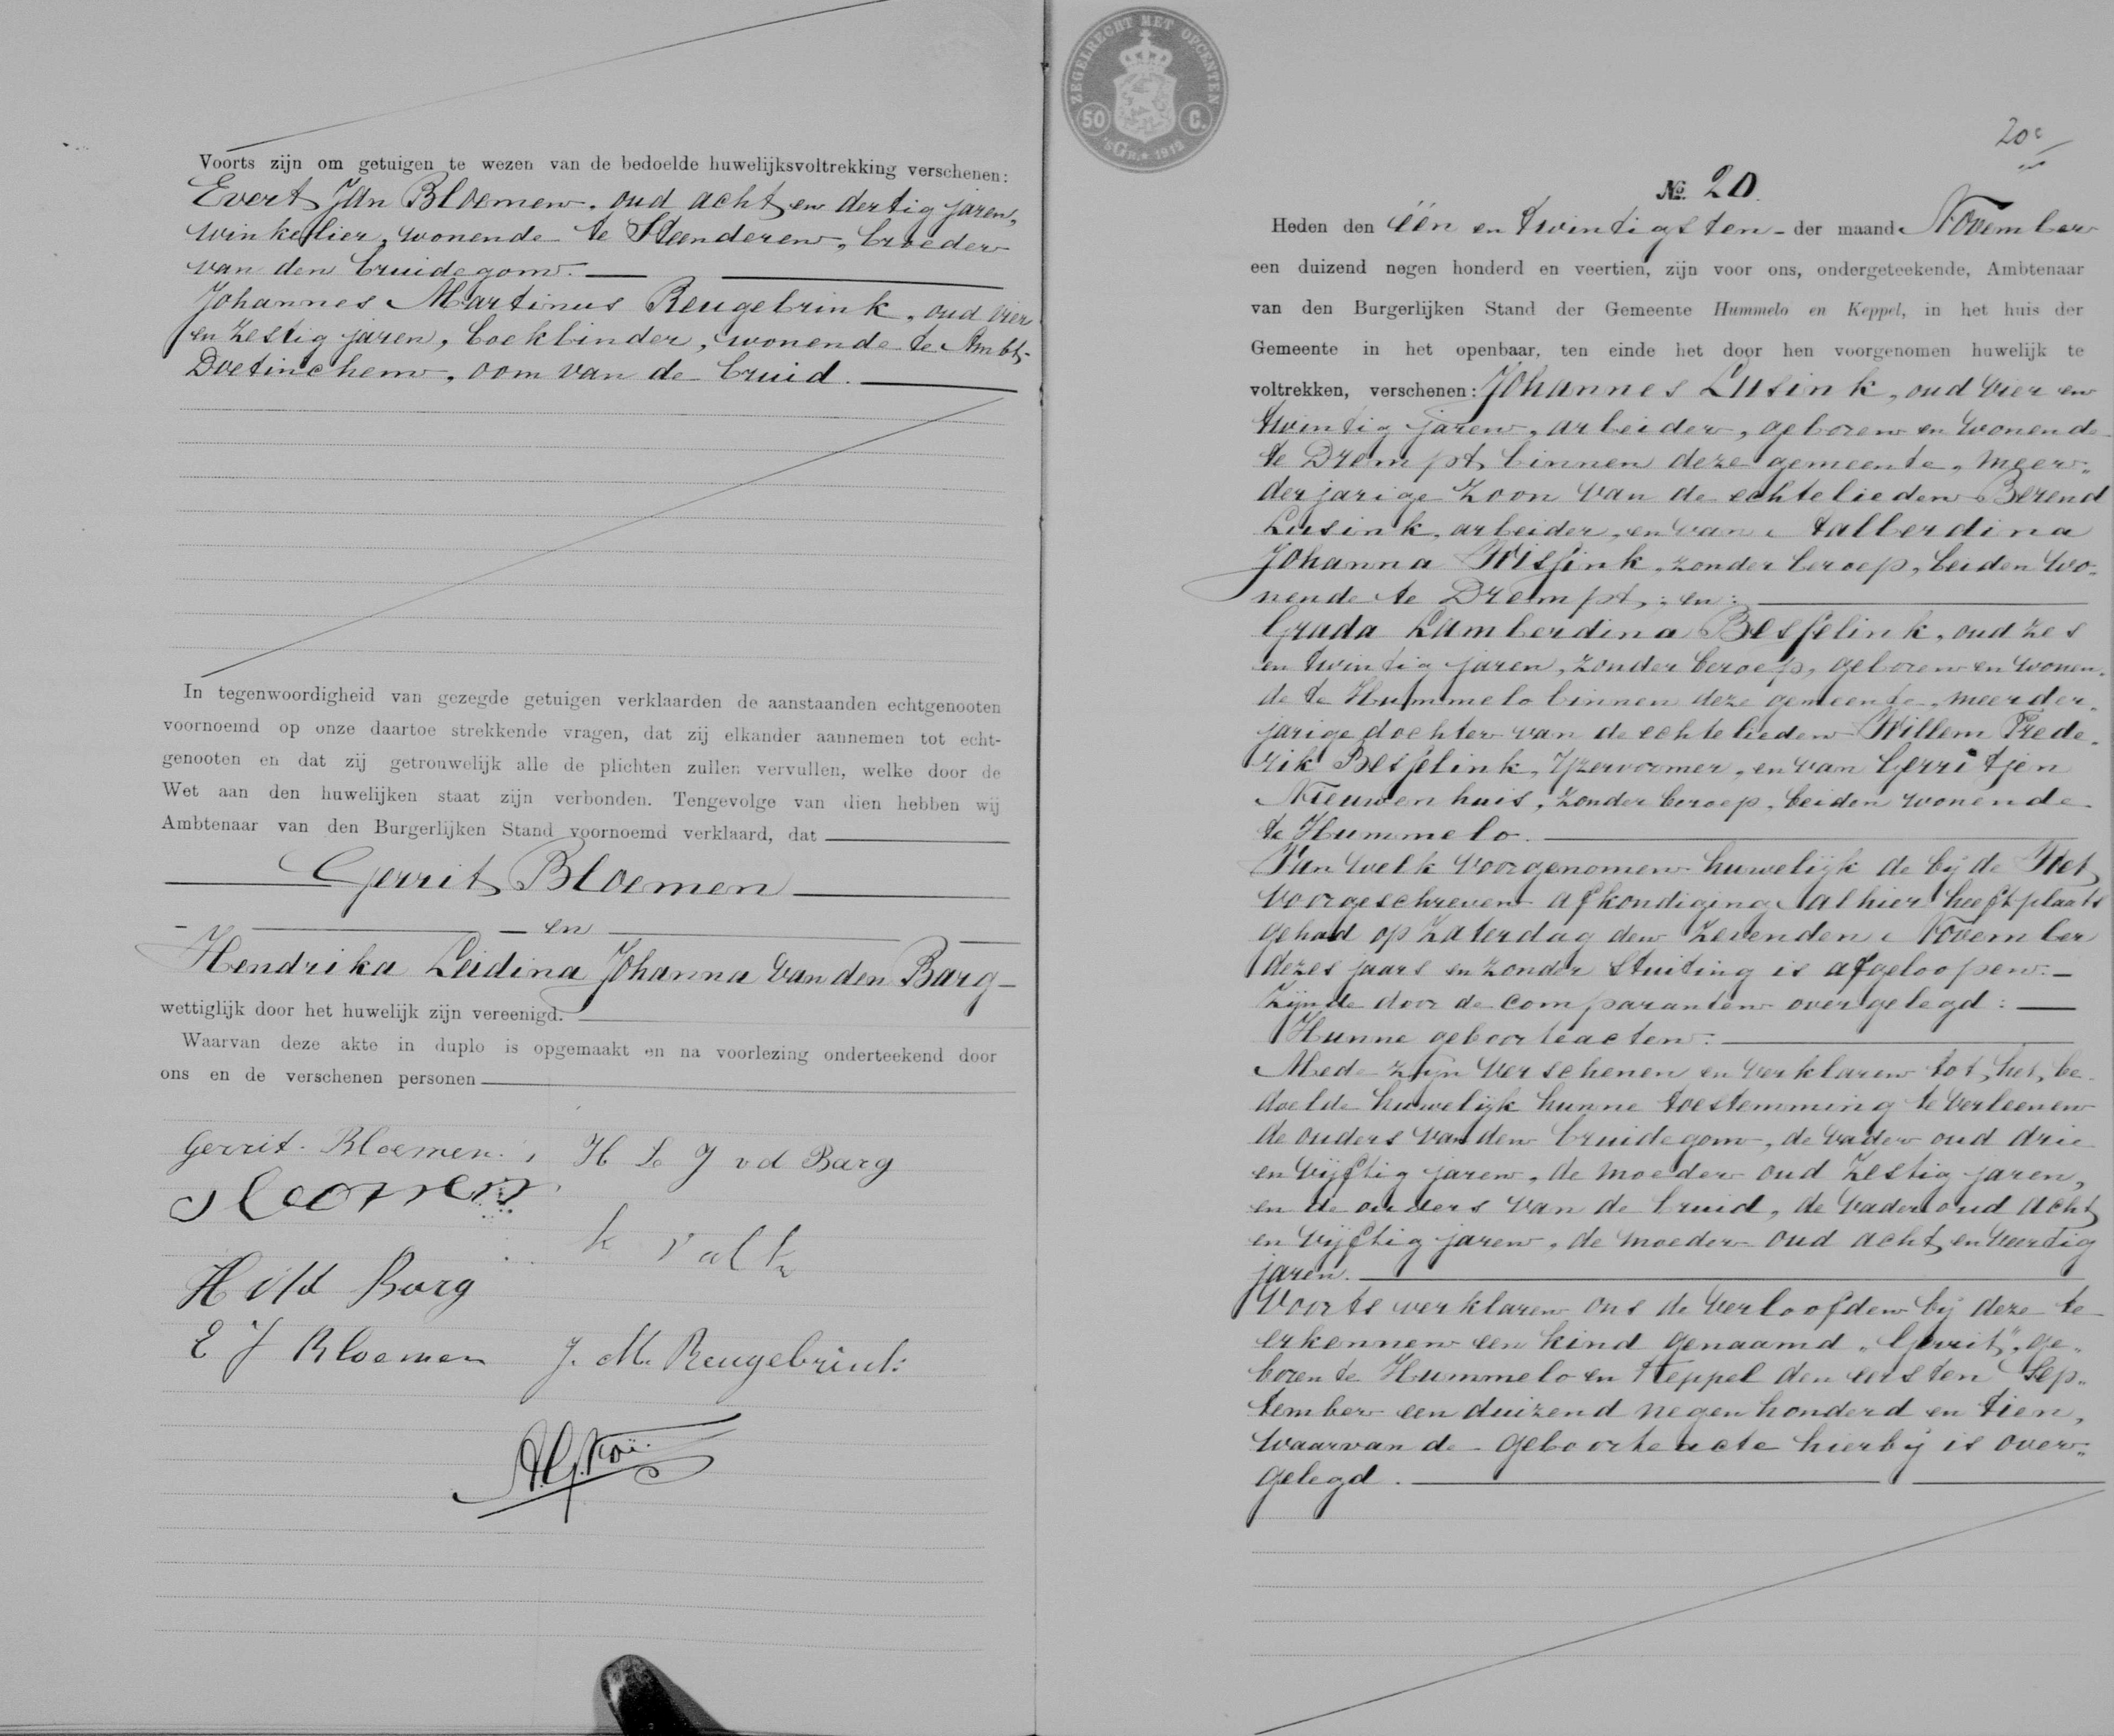 Voorts zijn om getuigen te wezen van de bedoelde huwelijksvoltrekking verschenen:
Evert Jan Bloemen, oud acht en dertig jaren,
winkelier, wonende te Steenderen, broeder
van den bruidegom.
Johannes Martinus Reugebrink, oud vier
en zestig jaren, boekbinder, wonende te Ambt-
Doetinchem, oom van de bruid.
In tegenwoordigheid van gezegde getuigen verklaarden de aanstaanden echtgenooten
voornoemd op onze daartoe strekkende vragen, dat zij elkander aannemen tot echt-
genooten en dat zij getrouwelijk alle de plichten zullen vervullen, welke door de
Wet aan den huwelijken staat zijn verbonden. Tengevolge van dien hebben wij
Ambtenaar van den Burgerlijken Stand voornoemd verklaard, dat
Gerrit Bloemen
en
Hendrika Leidina Johanna van den Barg
wettiglijk door het huwelijk zijn vereenigd.
Waarvan deze akte in duplo is opgemaakt en na voorlezing onderteekend door
ons en de verschenen personen
Gerrit Bloemen. H L J v d Barg
k valk
H Vd Barg
E J Bloemen J. M. Reugebrink
ZEGELRECHT MET OPCENTEN
50 C.
'sGR. 1912
20c
No. 20.
Heden den één en twintigsten - der maand November
een duizend negen honderd en veertien, zijn voor ons, ondergeteekende, Ambtenaar
van den Burgerlijken Stand der Gemeente Hummelo en Keppel, in het huis der
Gemeente in het openbaar, ten einde het door hen voorgenomen huwelijk te
voltrekken, verschenen: Johannes Lusink, oud vier en
twintig jaren, arbeider, geboren en wonende
te Drempt binnen deze gemeente, meer„
derjarige zoon van de echtelieden Berend
Lusink, arbeider, en van Aalberdina
Johanna Wissink, zonder beroep, beiden wo„
nende te Drempt; en:
Grada Lamberdina Besselink, oud zes
en twintig jaren, zonder beroep, geboren en wonen„
de te Hummelo binnen deze gemeente, meerder„
jarige dochter van de echtelieden Willem Frede„
rik Besselink, IJzervormer, en van Gerritjen
Nieuwenhuis, zonder beroep, beiden wonende
te Hummelo.
Van welk voorgenomen huwelijk de bij de Wet
voorgeschreven afkondiging alhier heeft plaats
gehad op Zaterdag den Zevenden November
dezes jaars en zonder stuiting is afgeloopen.
Zijnde door de comparanten overgelegd:
Hunne geboorteacten.
Mede zijn verschenen en verklaren tot het be„
doelde huwelijk hunne toestemming te verleenen
de ouders van den bruidegom, de vader oud drie
en vijftig jaren, de moeder oud zestig jaren,
en de ouders van de bruid, de vader oud acht
en vijftig jaren, de moeder oud acht en veertig
jaren.
Voorts verklaren ons de verloofden bij deze te
erkennen een kind genaamd „Gerrit", ge„
boren te Hummelo en Keppel den eersten Sep„
tember een duizend negen honderd en tien,
waarvan de geboorteacte hierbij is over„
gelegd.